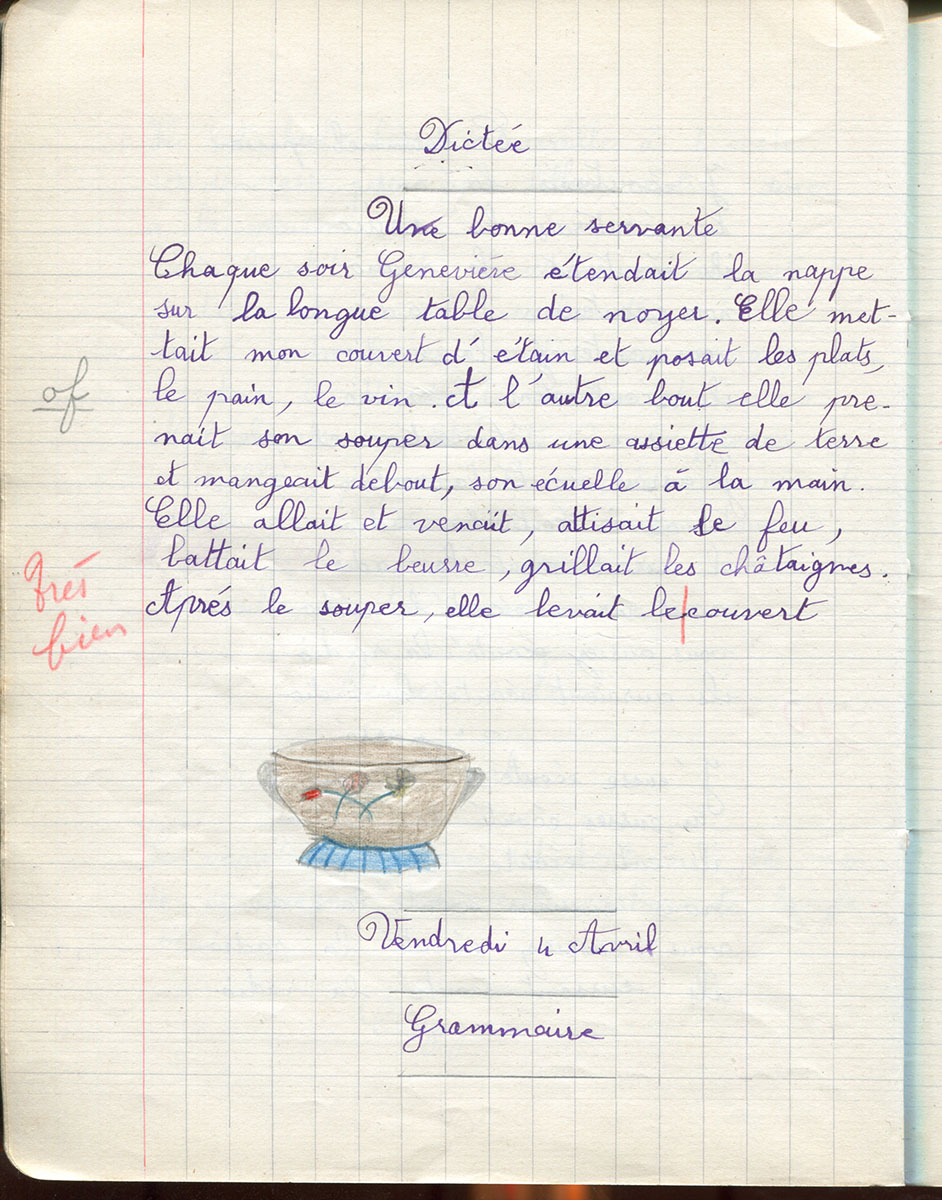 Dictée
Une bonne servante
Chaque soir Geneviére étendait la nappe
sur la longue table de noyer. Elle met-
tait mon couvert d'étain et posait les plats,
of
le pain, le vin. A l'autre bout elle pre-
nait son souper dans une assiette de terre
et mangeait debout, son écuelle à la main.
Elle allait et venait, attisait le feu,
battait le beurre, grillait les châtaignes.
Très
bien
Aprés le souper, elle levait le couvert
Vendredi 4 Avril
Grammaire